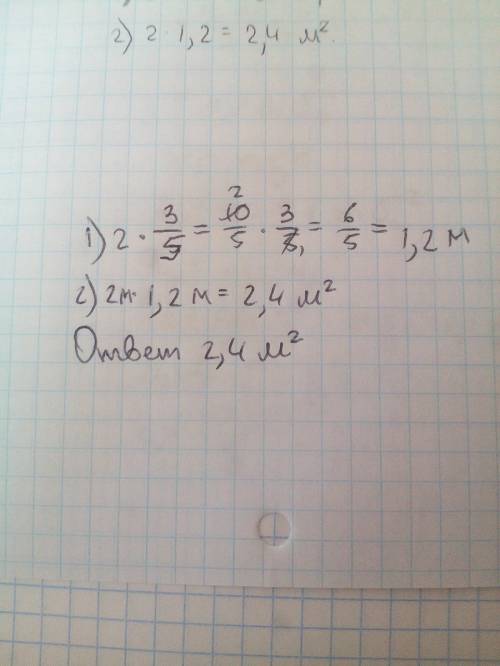 2) 2 · 1,2 = 2,4 м².
1) 2 · 3/5 = 10/5 · 3/5 = 6/5 = 1,2 м
2) 2м · 1,2 м = 2,4 м²
Ответ 2,4 м²